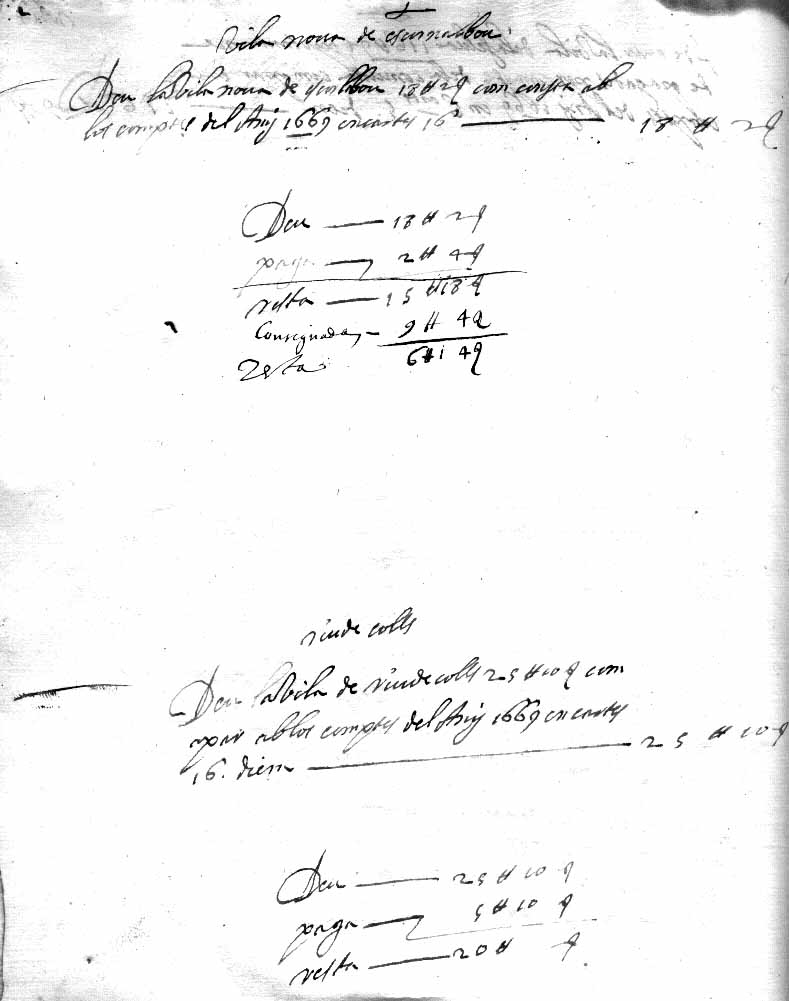 Vila nova de escurnalbou
Deu la Vila nova de scurlbou 18 ₶ 2 ꝗ com consta ab
los comptes del Any 1669 en cartes 16 —— 18 ₶ 2 ꝗ
Deu —— 18 ₶ 2 ꝗ
paga —— 2 ₶ 4 ꝗ
resta —— 15 ₶ 18 ꝗ
Consignada, — 9 ₶ 4 ꝗ
Resta 6 ₶ 14 ꝗ
riudecolls
Deu la Vila de riudecolls 25 ₶ 10 ꝗ com
apar ab los comptes del Any 1669 en cartes
16. diem —— 25 ₶ 10 ꝗ
Deu —— 25 ₶ 10 ꝗ
paga —— 5 ₶ 10 ꝗ
resta —— 20 ₶ ꝗ